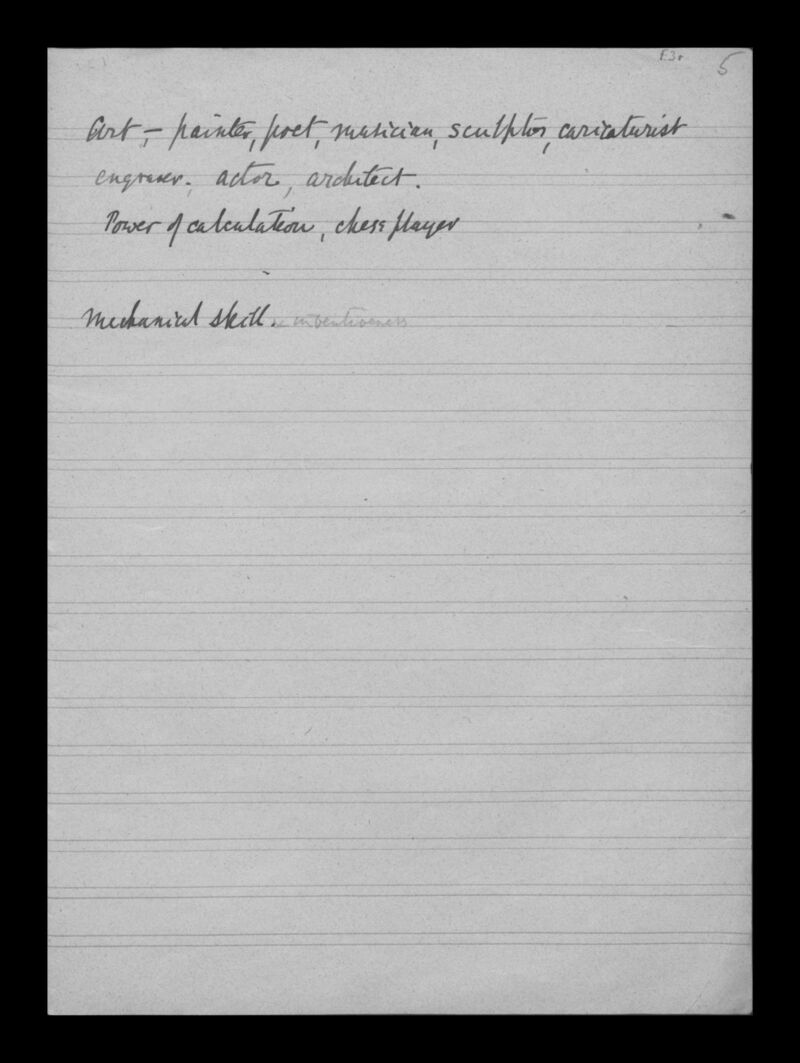 f.3r 5
Art, - painter, poet, musician, sculptor, caricaturist
engraver. actor, architect.
Power of calculation, chess player
Mechanical skill. inventiveness